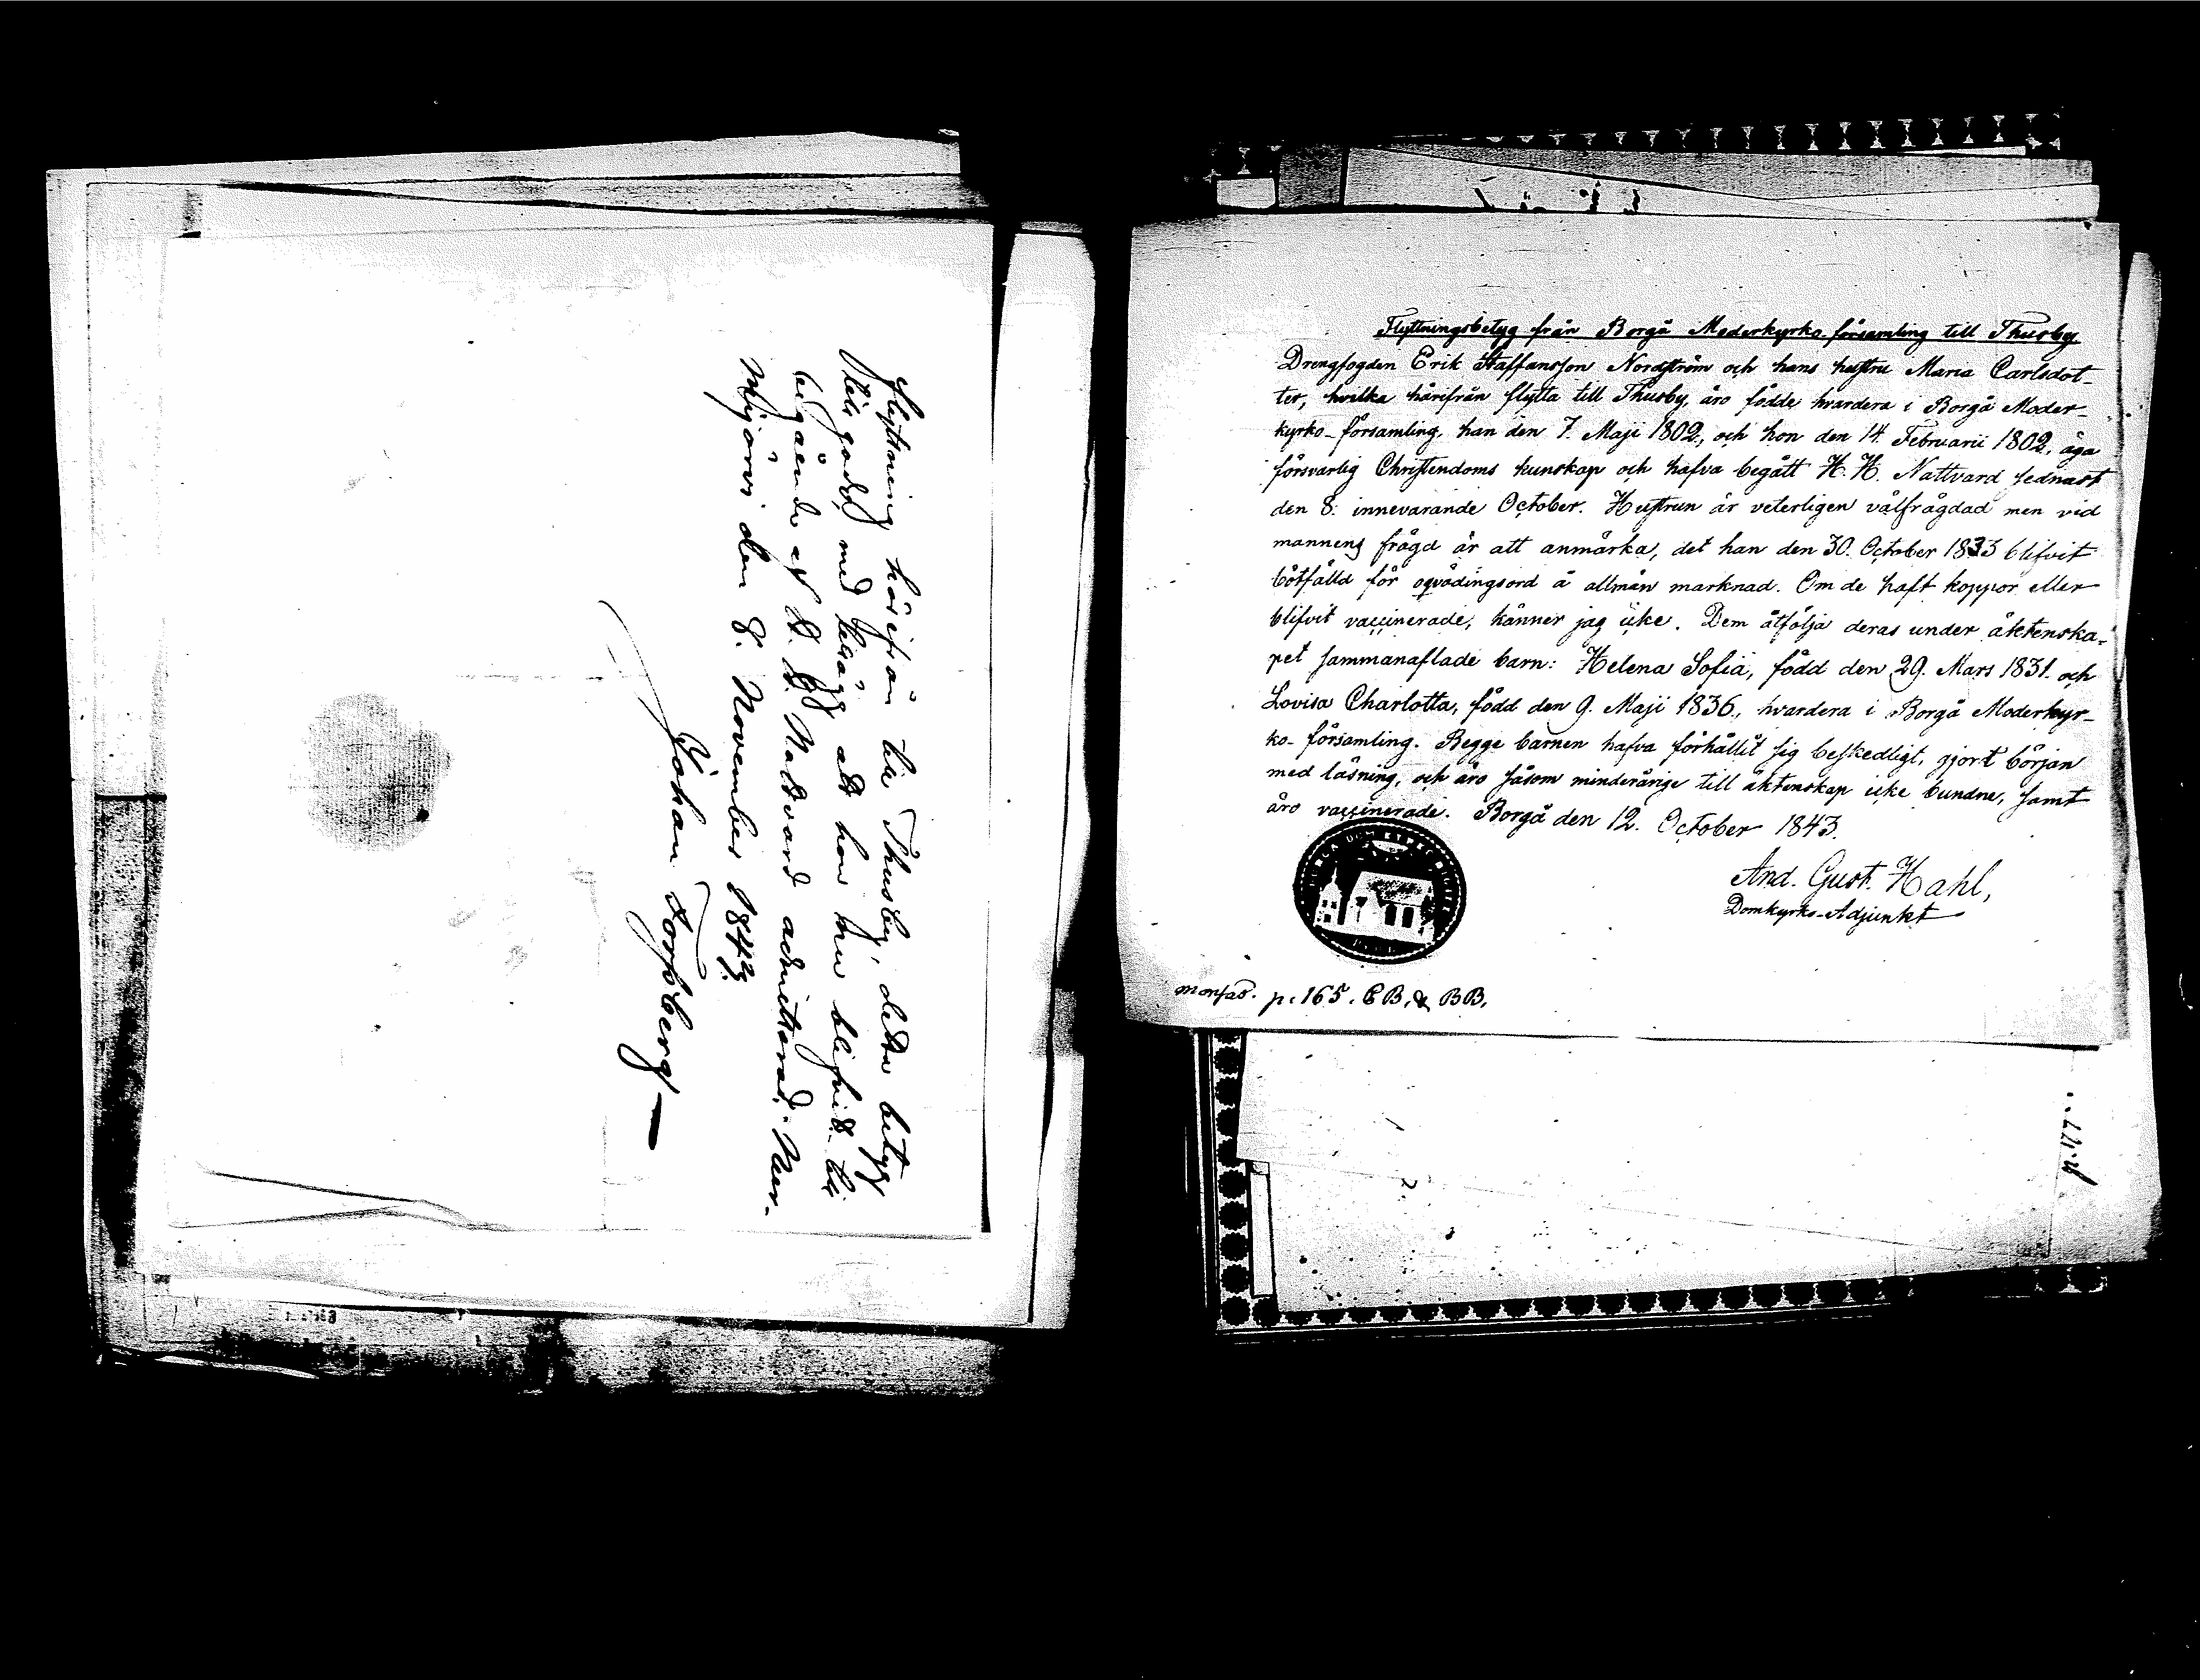 flyttning härifrån till Thusby, detta betyg
till godo, med tillägg att hon ben blifvit till
begående af H. H. Nattvard admitterad. Nur-
mijärvi den 8. November 1843.
Johan Forssberg
Flyttningsbetyg från Borgå Moderkyrko-församling till Thusby
Drengfogden Erik Staffansson Nordström och hans hustru Maria Carlsdot-
ter, hvilka härifrån flytta till Thusby, äro födde hvardera i Borgå Moder-
kyrko-församling, han den 7. Maji 1802, och hon den 14. Februarii 1802, äga
försvarlig Christendoms kunskap och hafva begått H. H. Nattvard sednast
den 8. innevarande October. Hustrun är veterligen välfrägdad men vid
mannens frägd är att anmärka, det han den 30. October 1833 blifvit
bötfälld för oqvädingsord å allmän marknad. Om de haft koppor eller
blifvit vaccinerade, känner jag icke. Dem åtfölja deras under äktenska-
pet sammanaflade barn: Helena Sofia, född den 29. Mars 1831. och
Lovisa Charlotta, född den 9. Maji 1836, hvardera i Borgå Moderkyr-
ko-församling. Begge barnen hafva förhållit sig beskedligt, gjort början
med läsning, och äro såsom minderårige till äktenskap icke bundne, samt
äro vaccinerade. Borgå den 12. October 1843.
And. Gust. Hahl,
Domkyrko-Adjunkt
p. 165. CB, & BB.